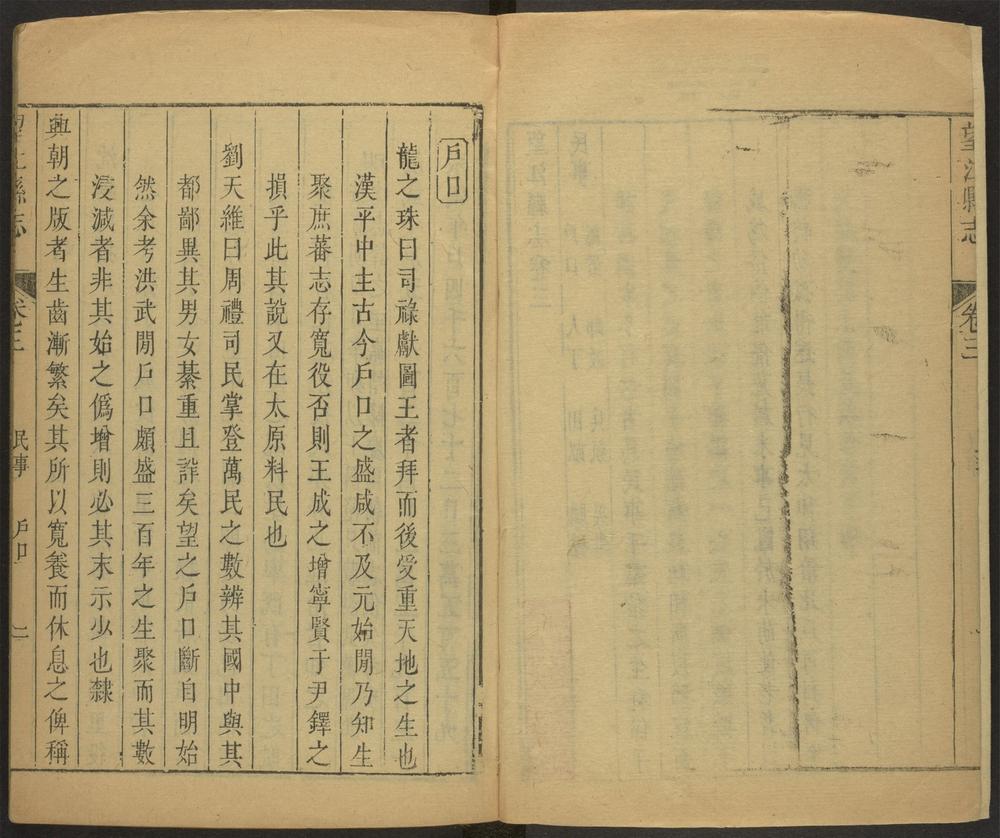 望江縣志
卷三
戶口
龍之珠曰司祿獻圖王者拜而後受重天地之生也
漢平中主古今戶口之盛咸不及元始閒乃知生
聚庶蕃志存寬役否則王成之增寧賢于尹鐸之
損乎此其說又在太原料民也
劉天維曰周禮司民掌登萬民之數辨其國中與其
都鄙異其男女綦重且詳矣望之戶口斷自明始
然余考洪武閒戶口頗盛三百年之生聚而其數
浸減者非其始之僞增則必其末示少也隸
興朝之版者生齒漸繁矣其所以寬養而休息之俾稱
望江縣志
卷三
民事
戶口
二